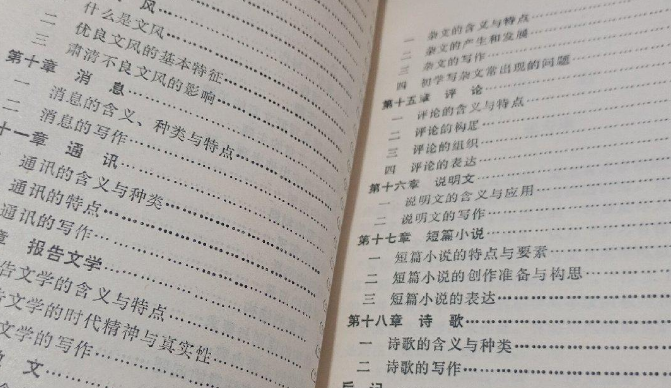 风
一 什么是文风
二 优良文风的基本特征
三 肃清不良文风的影响
第十章 消 息
一 消息的含义、种类与特点
二 消息的写作
十一章 通 讯
通讯的含义与种类
通讯的特点
通讯的写作
章 报告文学
告文学的含义与特点
文学的时代精神与真实性
文学的写作
文
一 杂文的含义与特点
二 杂文的产生和发展
三 杂文的写作
四 初学写杂文常出现的问题
第十五章 评 论
一 评论的含义与特点
二 评论的构思
三 评论的组织
四 评论的表达
第十六章 说明文
一 说明文的含义与应用
二 说明文的写作
第十七章 短篇小说
一 短篇小说的特点与要素
二 短篇小说的创作准备与构思
三 短篇小说的表达
第十八章 诗 歌
一 诗歌的含义与种类
二 诗歌的写作
后 记